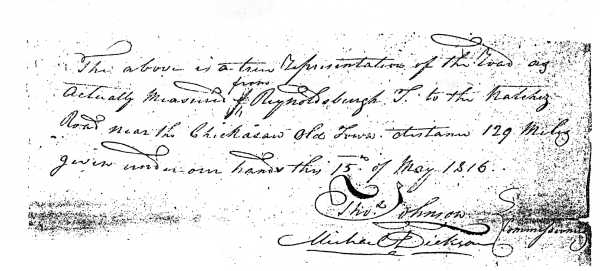 The above is a true Representation of the Road as
actually measured from Reynoldsburgh T. to the Natchez
Road near the Chickasaw Old Town distance 129 Miles
given under our hands this 15th of May 1816.
Thos. Johnson
Michael Dickson
Commissioners